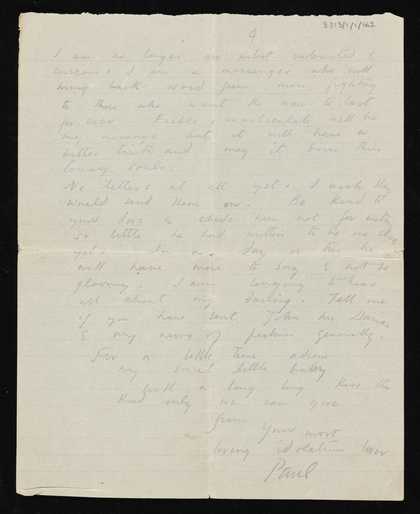 4
8313/1/1/162
I am no longer an artist interested &
curious. I am a messenger who will
bring back word from men fighting
to those who want the war to last
for ever. Feeble & inarticulate will be
my message but it will have a
bitter truth and may it burn their
lousy souls.
No letters at all yet. I wish they
would send them on. Be kind to
your &
so little he had written to be
yet. In a day or two he
will have more to say & not be
gloomy. I am longing to hear
all about my darling. Tell me
if you have sent John his Drawing
& any news of pictures generally.
For a little time adieu
my sweet little baby
with a long long kiss the
kind only we can give
from
Yours most
loving idolatrous lover
Paul